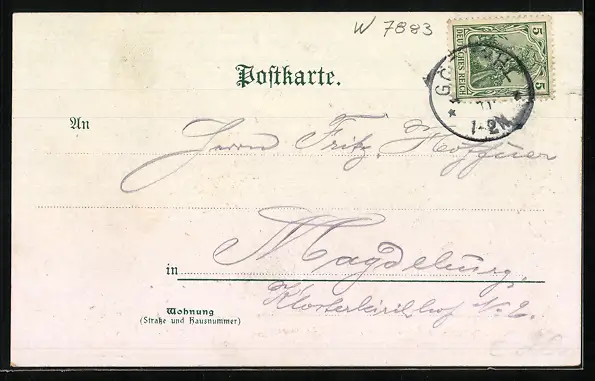 W 7883
5 DEUTSCHES REICH 5
1-2N.
Postkarte.
An
Herrn Fritz
in Magdeburg,
Klosterkirchhof No 2.
Wohnung
(Straße und Hausnummer)